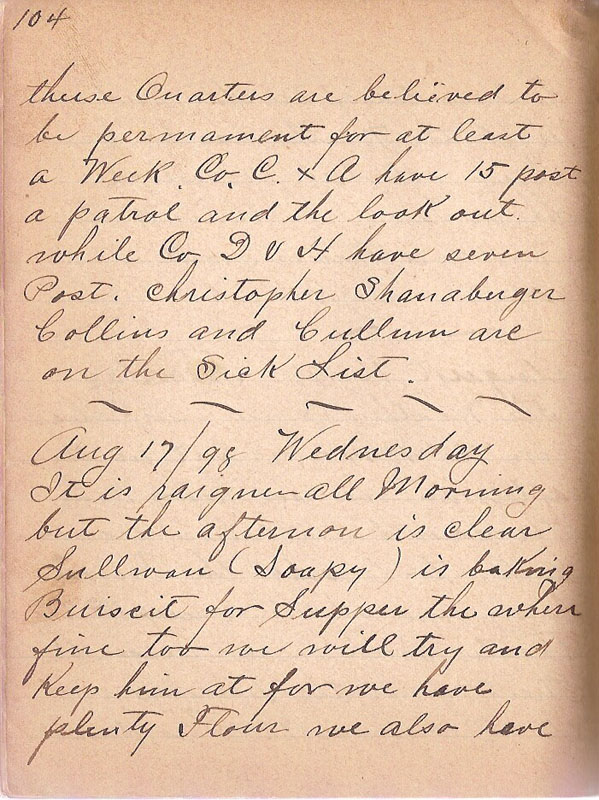 104
theese Quarters are believed to
be permament for at least
a Week. Co. C. & A have 15 post
a patrol and the look out.
while Co D & H have seven
Post. Christopher Shanaberger
Collins and Cullum are
on the Sick List.
Aug 17/98 Wednesday
It is raigne all Morning
but the afternon is clear
Sullivan (Soapy) is baking
Buiscit for Supper the where
fine too we will try and
Keep him at for we have
plenty Flour we also have